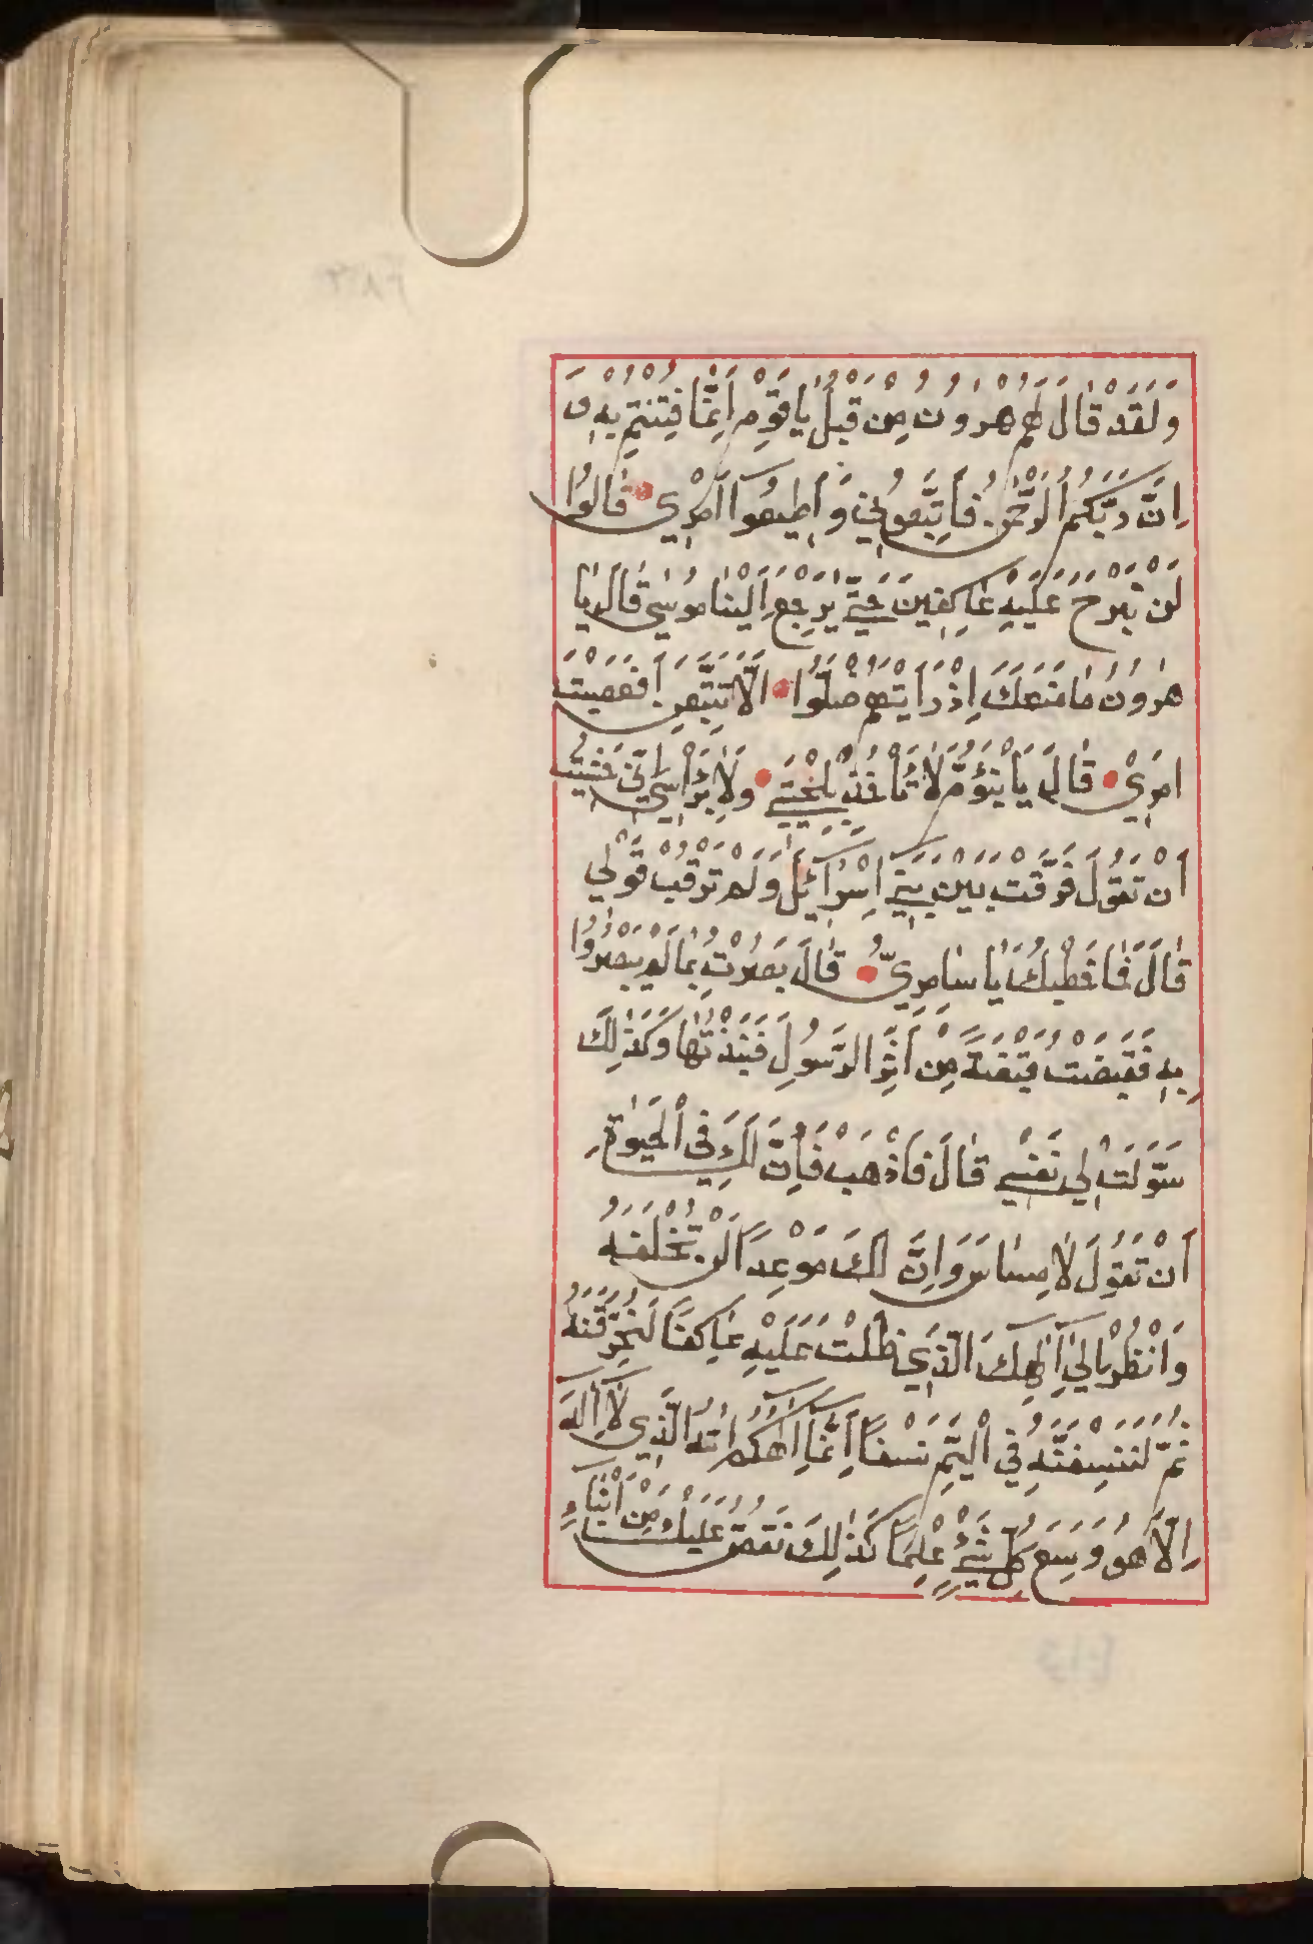 وَلَقَدْ قَالَ لَهُمْ هٰرُونُ مِنْ قَبْلُ يَا قَوْمِ اِنَّمَا فُتِنْتُمْ بِهٖ وَ
اِنَّ رَبَّكُمُ الرَّحْمٰنُ فَاتَّبِعُونِي وَاَطِيعُوا اَمْرِي قَالُوا
لَنْ نَبْرَحَ عَلَيْهِ عَاكِفِينَ حَتّٰى يَرْجِعَ اِلَيْنَا مُوسٰى قَالَ يَا
هٰرُونُ مَا مَنَعَكَ اِذْ رَاَيْتَهُمْ ضَلُّوا اَلَّا تَتَّبِعَنِ اَفَعَصَيْتَ
اَمْرِي قَالَ يَا بْنَؤُمَّ لَا تَاْخُذْ بِلِحْيَتِي وَلَا بِرَاْسِي اِنِّي خَشِيتُ
اَنْ تَقُولَ فَرَّقْتَ بَيْنَ بَنِي اِسْرَائِيلَ وَلَمْ تَرْقُبْ قَوْلِي
قَالَ فَمَا خَطْبُكَ يَا سَامِرِيُّ قَالَ بَصُرْتُ بِمَا لَمْ يَبْصُرُوا
بِهٖ فَقَبَضْتُ قَبْضَةً مِنْ اَثَرِ الرَّسُولِ فَنَبَذْتُهَا وَكَذٰلِكَ
سَوَّلَتْ لِي نَفْسِي قَالَ فَاذْهَبْ فَاِنَّ لَكَ فِي الْحَيٰوةِ
اَنْ تَقُولَ لَا مِسَاسَ وَاِنَّ لَكَ مَوْعِدًا لَنْ تُخْلَفَهُ
وَانْظُرْ اِلٰى اِلٰهِكَ الَّذِي ظَلْتَ عَلَيْهِ عَاكِفًا لَنُحَرِّقَنَّهُ
ثُمَّ لَنَنْسِفَنَّهُ فِي الْيَمِّ نَسْفًا اِنَّمَا اِلٰهُكُمُ اللّٰهُ الَّذِي لَا اِلٰهَ
اِلَّا هُوَ وَسِعَ كُلَّ شَيْءٍ عِلْمًا كَذٰلِكَ نَقُصُّ عَلَيْكَ مِنْ اَنْبَاءِ